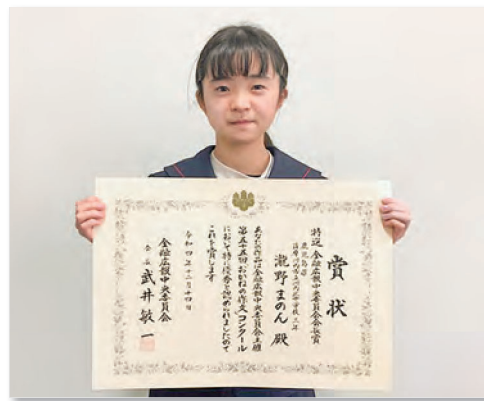 賞状
特選 金融広報中央委員会会長賞
鹿児島県
瀧野まのん 殿
あなたの作品は金融広報中央委員会主催
第五十五回「おかねの作文」コンクール
において特に優秀と認められましたので
これを賞します
令和四年十二月十四日
金融広報中央委員会
会長 武井敏一